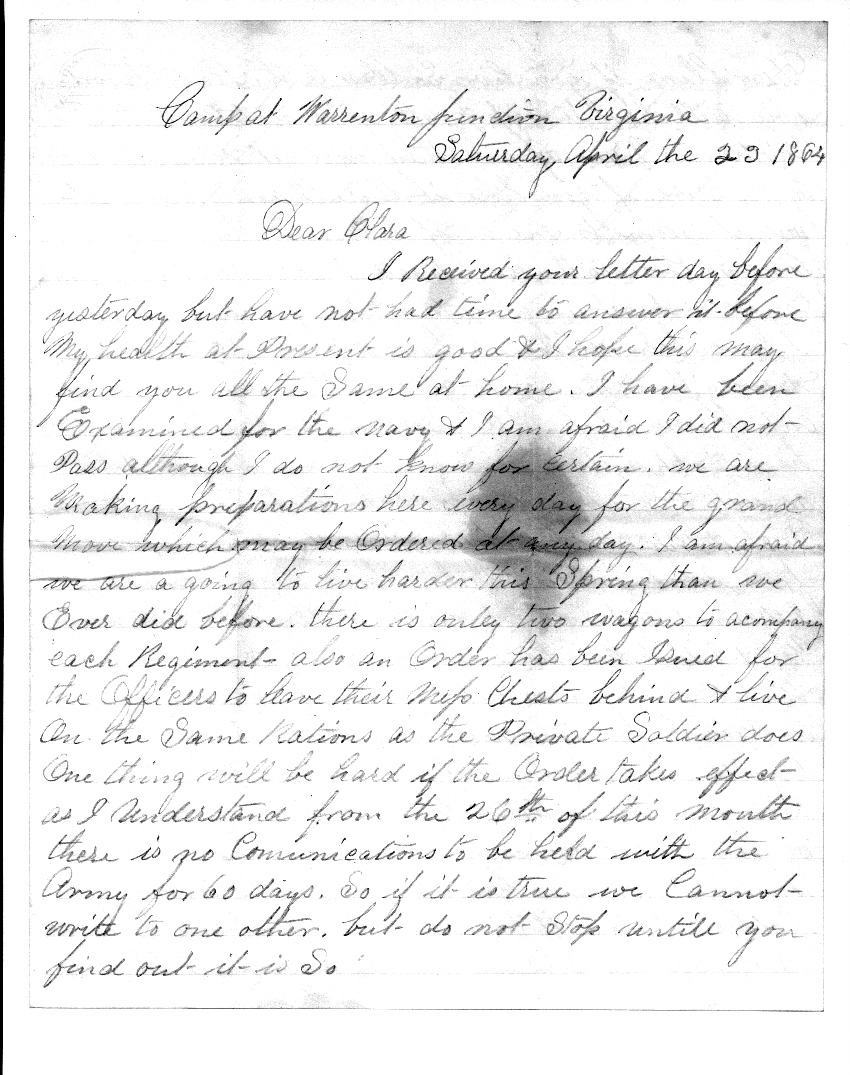 Camp at Warrenton junction Virginia
Saturday, April the 23 1864
Dear Clara
I Received your letter day before
yesterday but have not had time to answer it before
My health at Present is good & I hope this may
find you all the Same at home. I have been
Examined for the navy & I am afraid I did not
Pass although I do not know for certain. we are
Making preparations here every day for the grand
Move which may be Ordered at any day. I am afraid
we are a going to live harder this Spring than we
Ever did before. there is only two wagons to acompany
each Regiment also an Order has been Isued for
the Officers to leave their Mess Chests behind & live
On the Same Rations as the Private Soldier does
One thing will be hard if the Order takes effect
as I Understand from the 26th of this month
there is no Comunications to be held with the
Army for 60 days. So if it is true we Cannot
write to one other. but do not Stop untill you
find out it is So